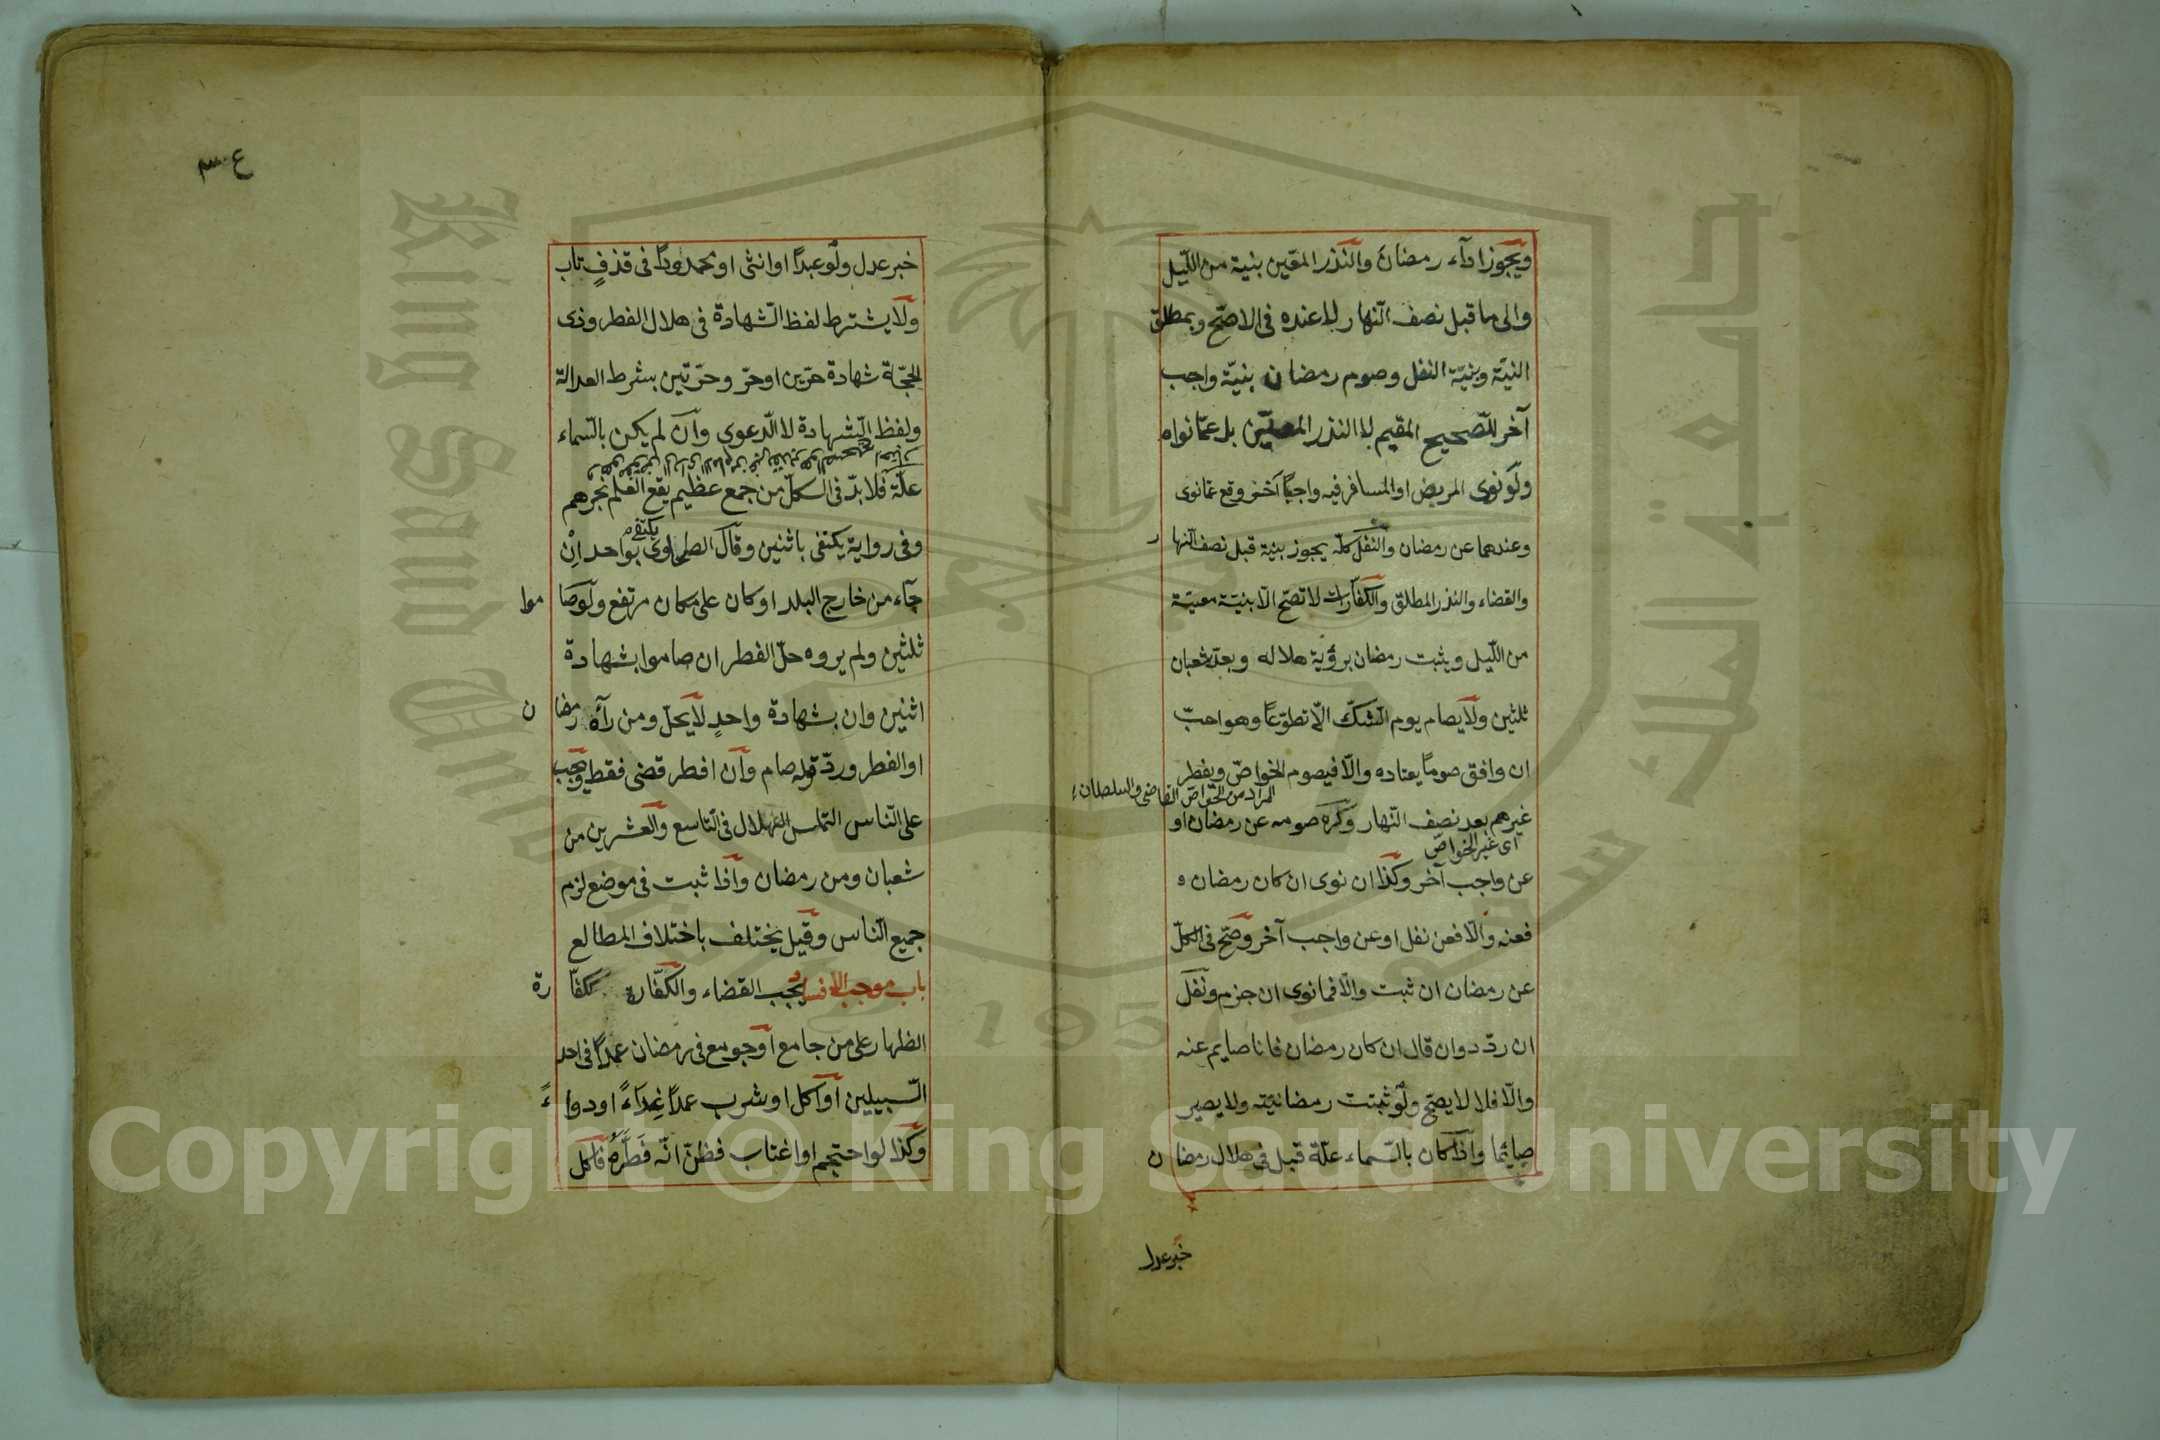 ويجوز اداء رمضان والنذر المعين بنية من الليل
والى ما قبل نصف النهار لا عنده فى الاصح وبمطلق
النية وبنية النفل وصوم رمضان بنية واجب
آخر للصحيح المقيم لا النذر المعين بل عما نواه
ولو نوى المريض او المسافر فيه واجبا آخر وقع عما نوى
وعندهما عن رمضان والنفل كله يجوز بنية قبل نصف النهار
والقضاء والنذر المطلق والكفارات لا تصح الا بنية معينة
من الليل ويثبت رمضان برؤية هلاله وبعد شعبان
ثلثين ولا يصام يوم الشك الا تطوعا وهو احب
ان وافق صوما يعتاده والا فيصوم الخواص ويفطر
المراد من الخواص القاضى والسلطان
غيرهم بعد نصف النهار وكره صومه عن رمضان او
اى غير الخواص
عن واجب آخر وكذا ان نوى ان كان رمضان ه
فعنه والا فعن نفل او عن واجب آخر وصح فى الكل
عن رمضان ان ثبت والا فما نوى ان جزم ونفل
ان ردد وان قال ان كان رمضان فانا صايم عنه
والا فلا لا يصح ولو ثبتت رمضانيته ولا يصير
صائما واذا كان بالسماء علة قبل فى هلال رمضان
خبر عدل
ع٣٠
خبر عدل ولو عبدا او انثى او محدودا فى قذف تاب
ولا يشترط لفظ الشهادة فى هلال الفطر وذى
الحجة شهادة حرين او حر وحرتين بشرط العدالة
ولفظ الشهادة لا الدعوى وان لم يكن بالسماء
علة فلا بد فى الكل من جمع عظيم يقع العلم بخبرهم
وفى رواية يكتفى باثنين وقال الطحاوى يكتفى بواحد ان
جاء من خارج البلد او كان على مكان مرتفع ولو صاموا
ثلثين ولم يروه حل الفطر ان صاموا بشهادة
اثنين وان بشهادة واحد لا يحل ومن رآه رمضان
او الفطر ورد قوله صام وان افطر قضى فقط ويجب
على الناس التماس الهلال فى التاسع والعشرين من
شعبان ومن رمضان واذا ثبت فى موضع لزم
جميع الناس وقيل يختلف باختلاف المطالع
باب موجب الافساد يجب القضاء والكفارة ككفارة
الظهار على من جامع او جومع فى رمضان عمدا فى احد
السبيلين او اكل او شرب عمدا غداء او دواء
وكذا لو احتجم او اغتاب فظن انه فطره فاكل
Copyright © King Saud University
King Saud University
جامعة الملك سعود
1957